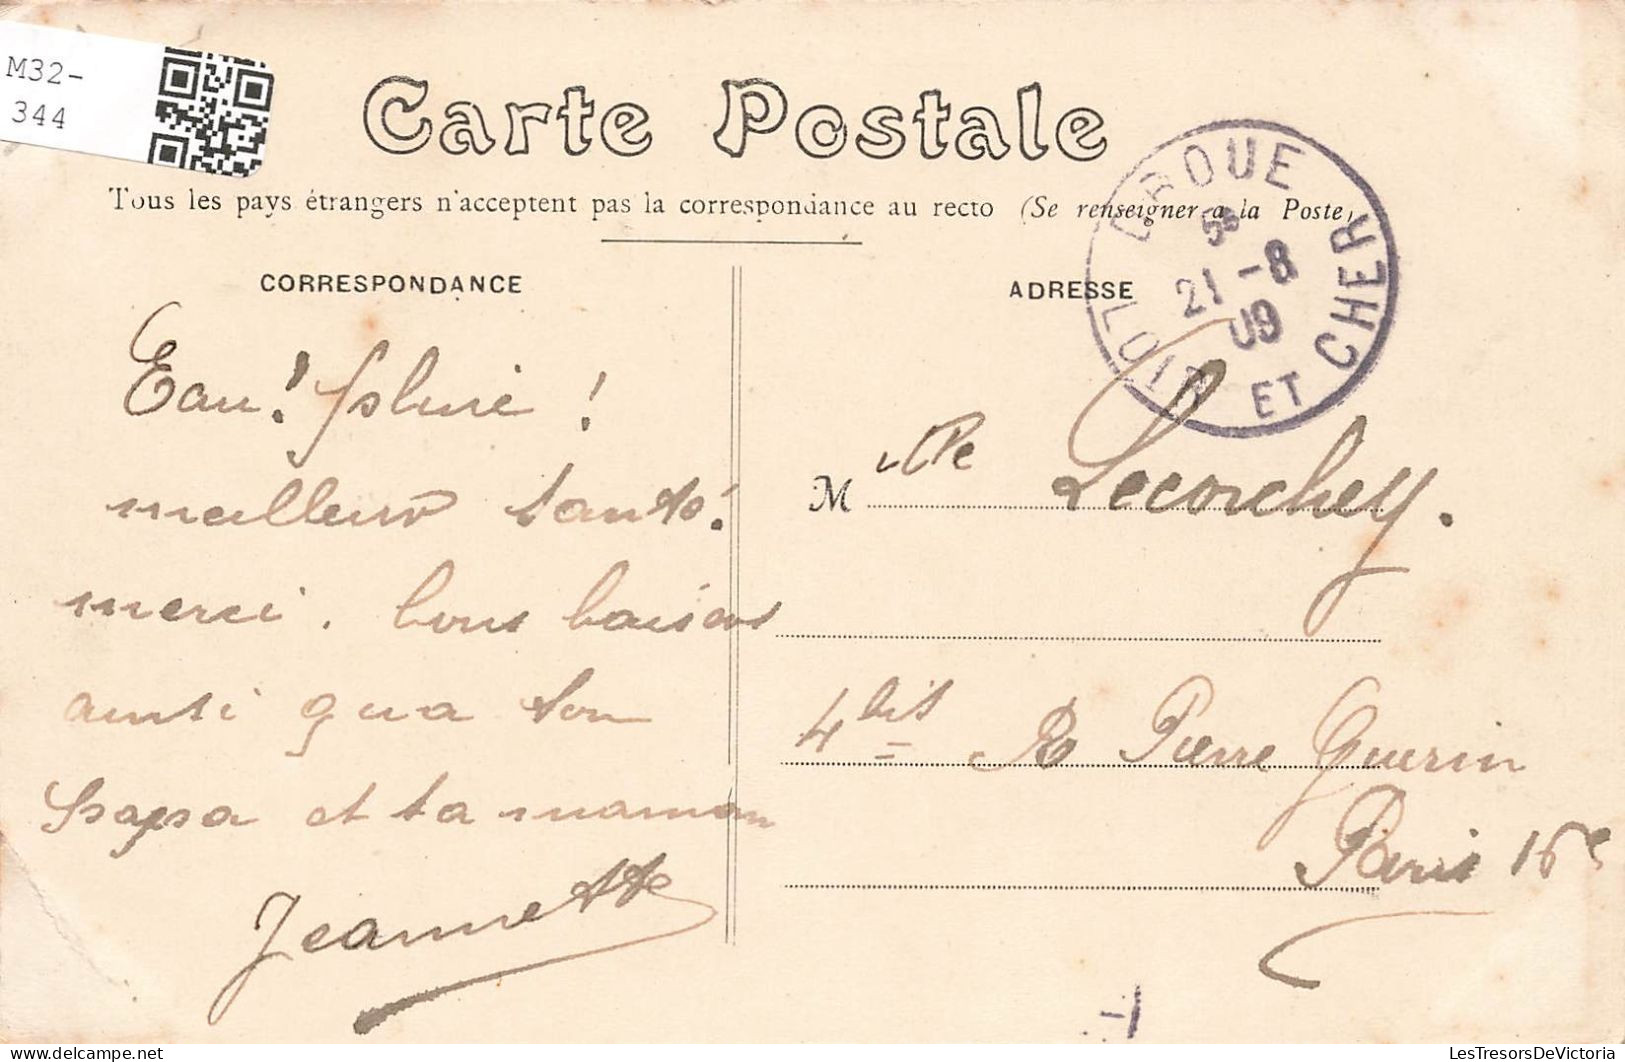 M32-
344
Carte Postale
Tous les pays étrangers n'acceptent pas la correspondance au recto (Se renseigner à la Poste)
CORRESPONDANCE
ADRESSE
DROUE
5e
21 -8
09
LOIR ET CHER
Eau! pluie !
meilleure santé!
merci. bons baisers
ainsi qu'a ton
papa et ta maman
Jeannette
Mlle Lecorchey.
4 bis R Pierre Guerin
Paris 16e
LesTresorsDeVictoria
www.delcampe.net